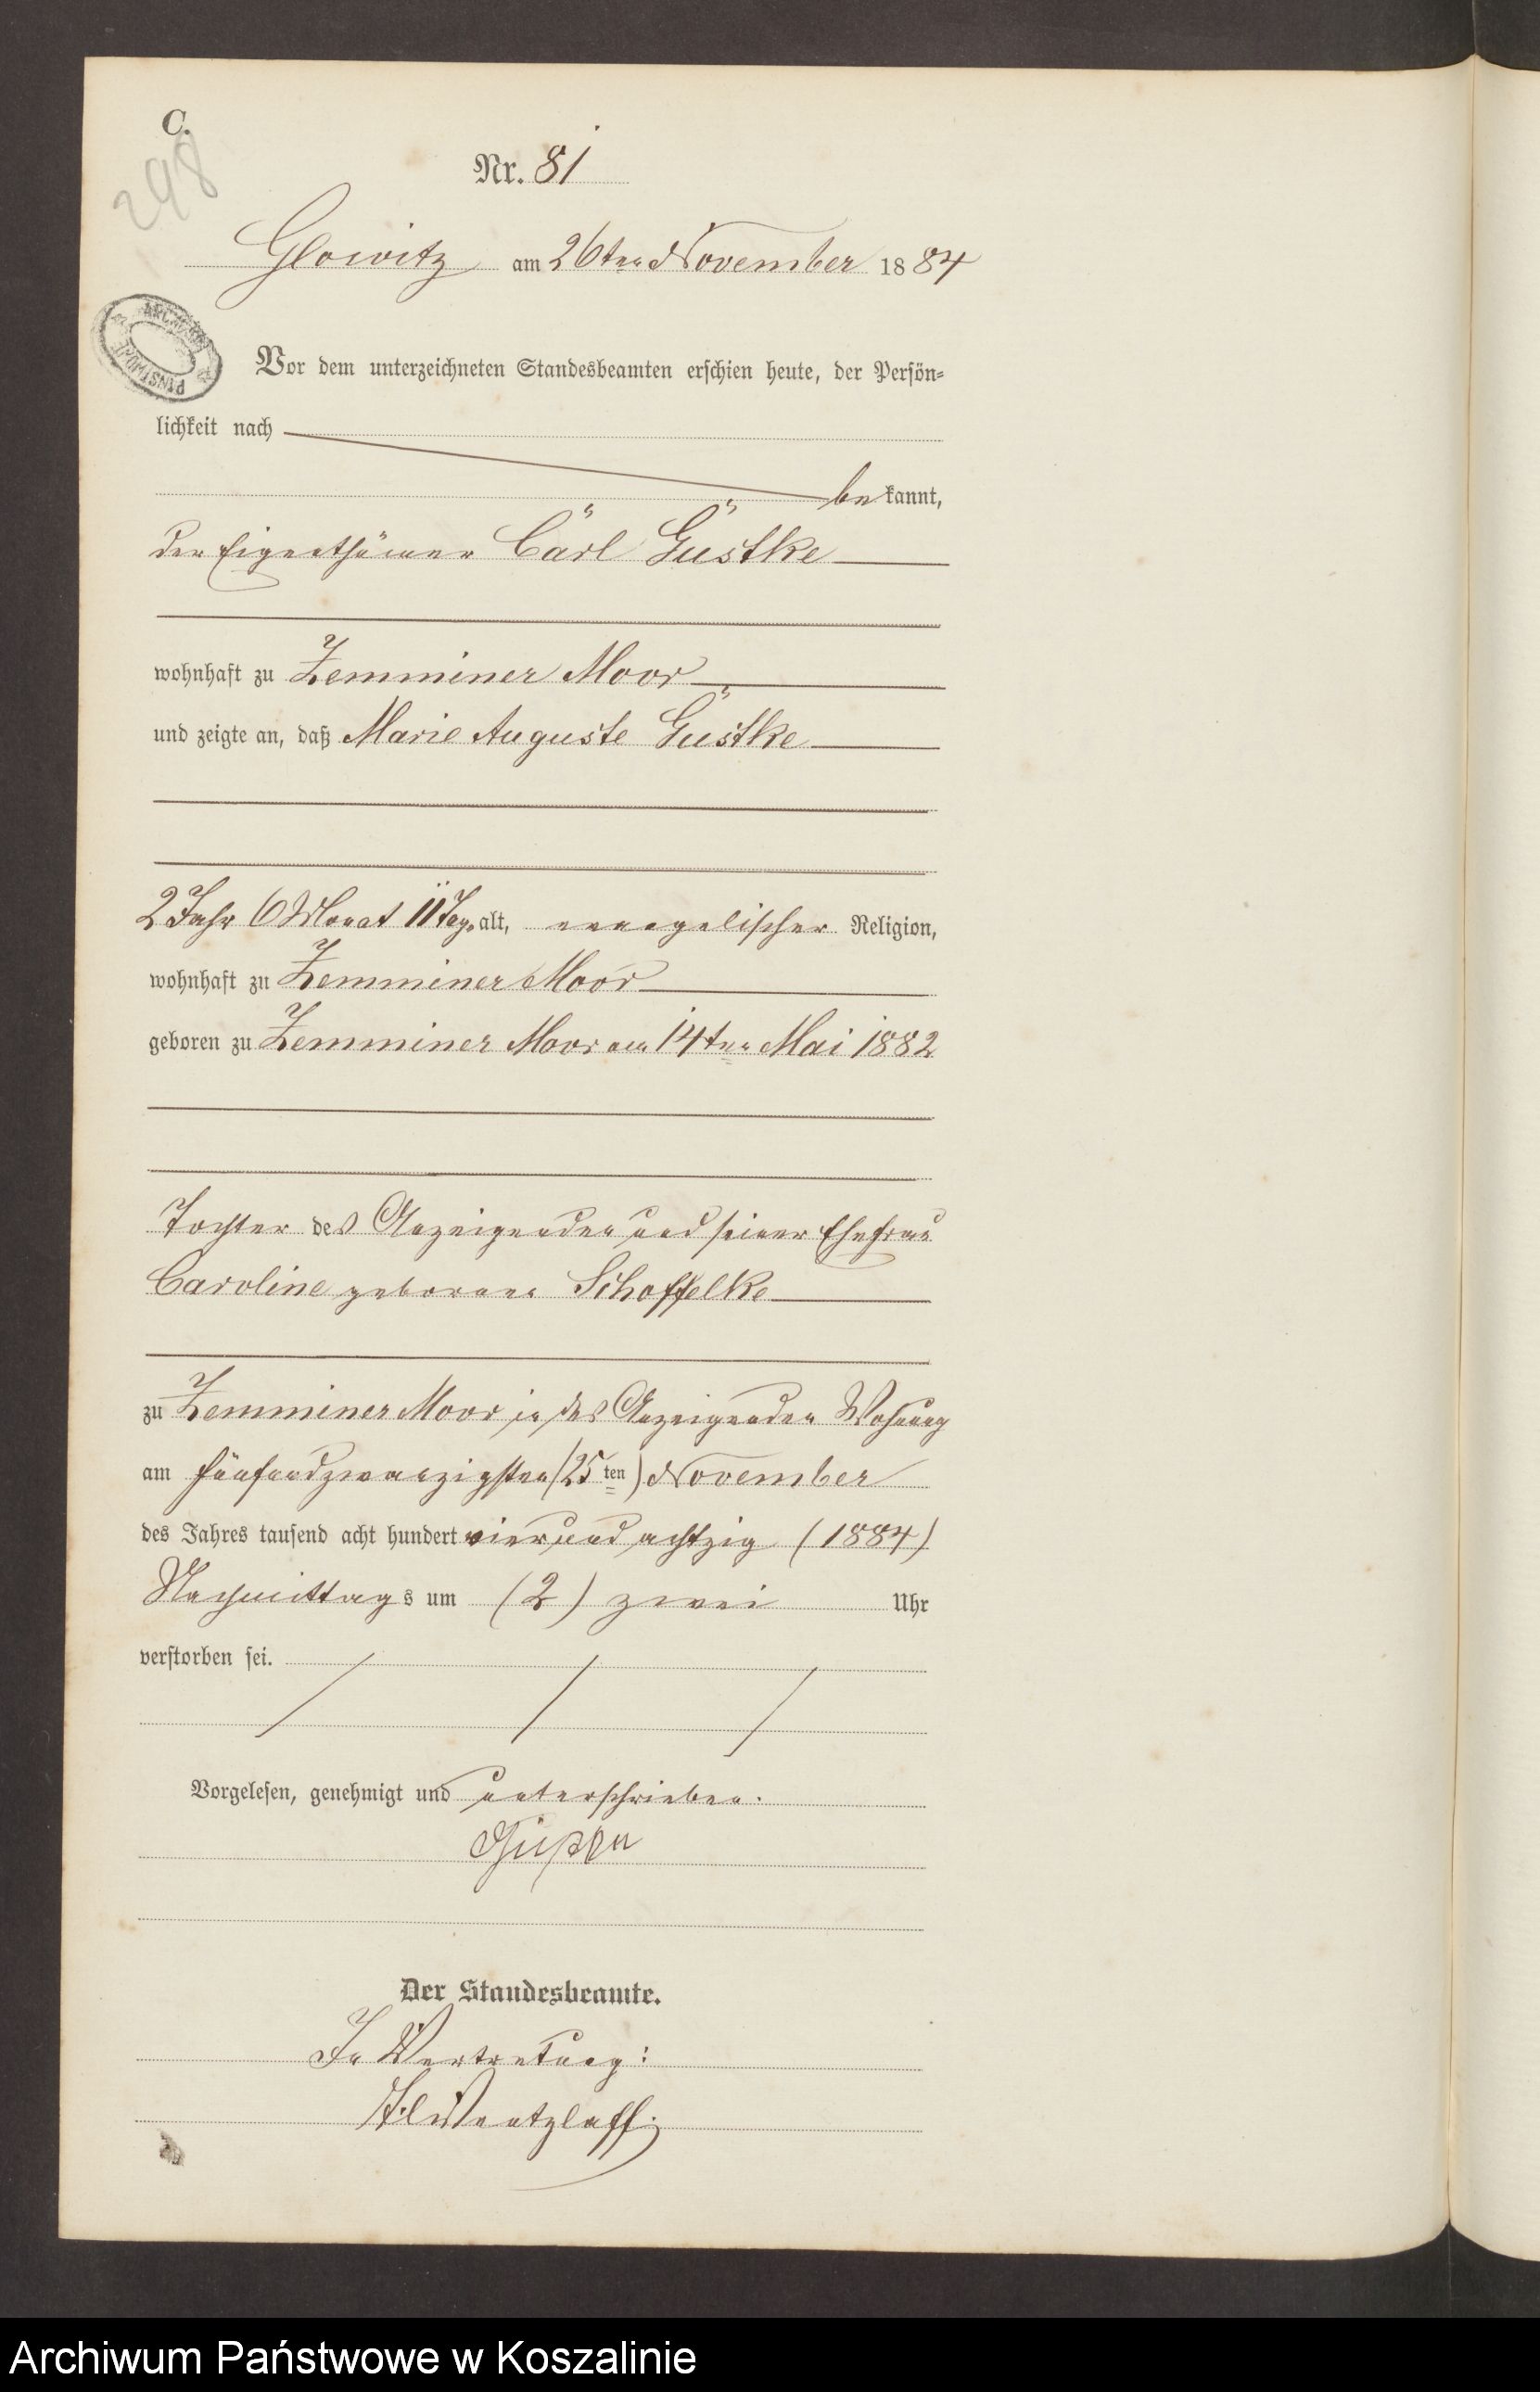 C.
248
Nr. 81
Glowitz am 26ten November 1884
ARCHIWUM PAŃSTWOWE
Vor dem unterzeichneten Standesbeamten erschien heute, der Persön-
lichkeit nach
bekannt,
der Eigenthümer Carl Güstke
wohnhaft zu Zemminer Moor
und zeigte an, daß Marie Auguste Güstke
2 Jahr 6 Monat 11 Tag. alt, evangelischer Religion,
wohnhaft zu Zemminer Moor
geboren zu Zemminer Moor am 14ten Mai 1882
Tochter des Anzeigenden und seiner Ehefrau
Caroline geborenen Schoffelke
zu Zemminer Moor in des Anzeigenden Wohnung
am fünfundzwanzigsten (25ten) November
des Jahres tausend acht hundert vierundachtzig (1884)
Nachmittags um (2) zwei Uhr
verstorben sei.
Vorgelesen, genehmigt und unterschrieben.
Der Standesbeamte.
In Vertretung:
Wentzlaff.
Archiwum Państwowe w Koszalinie